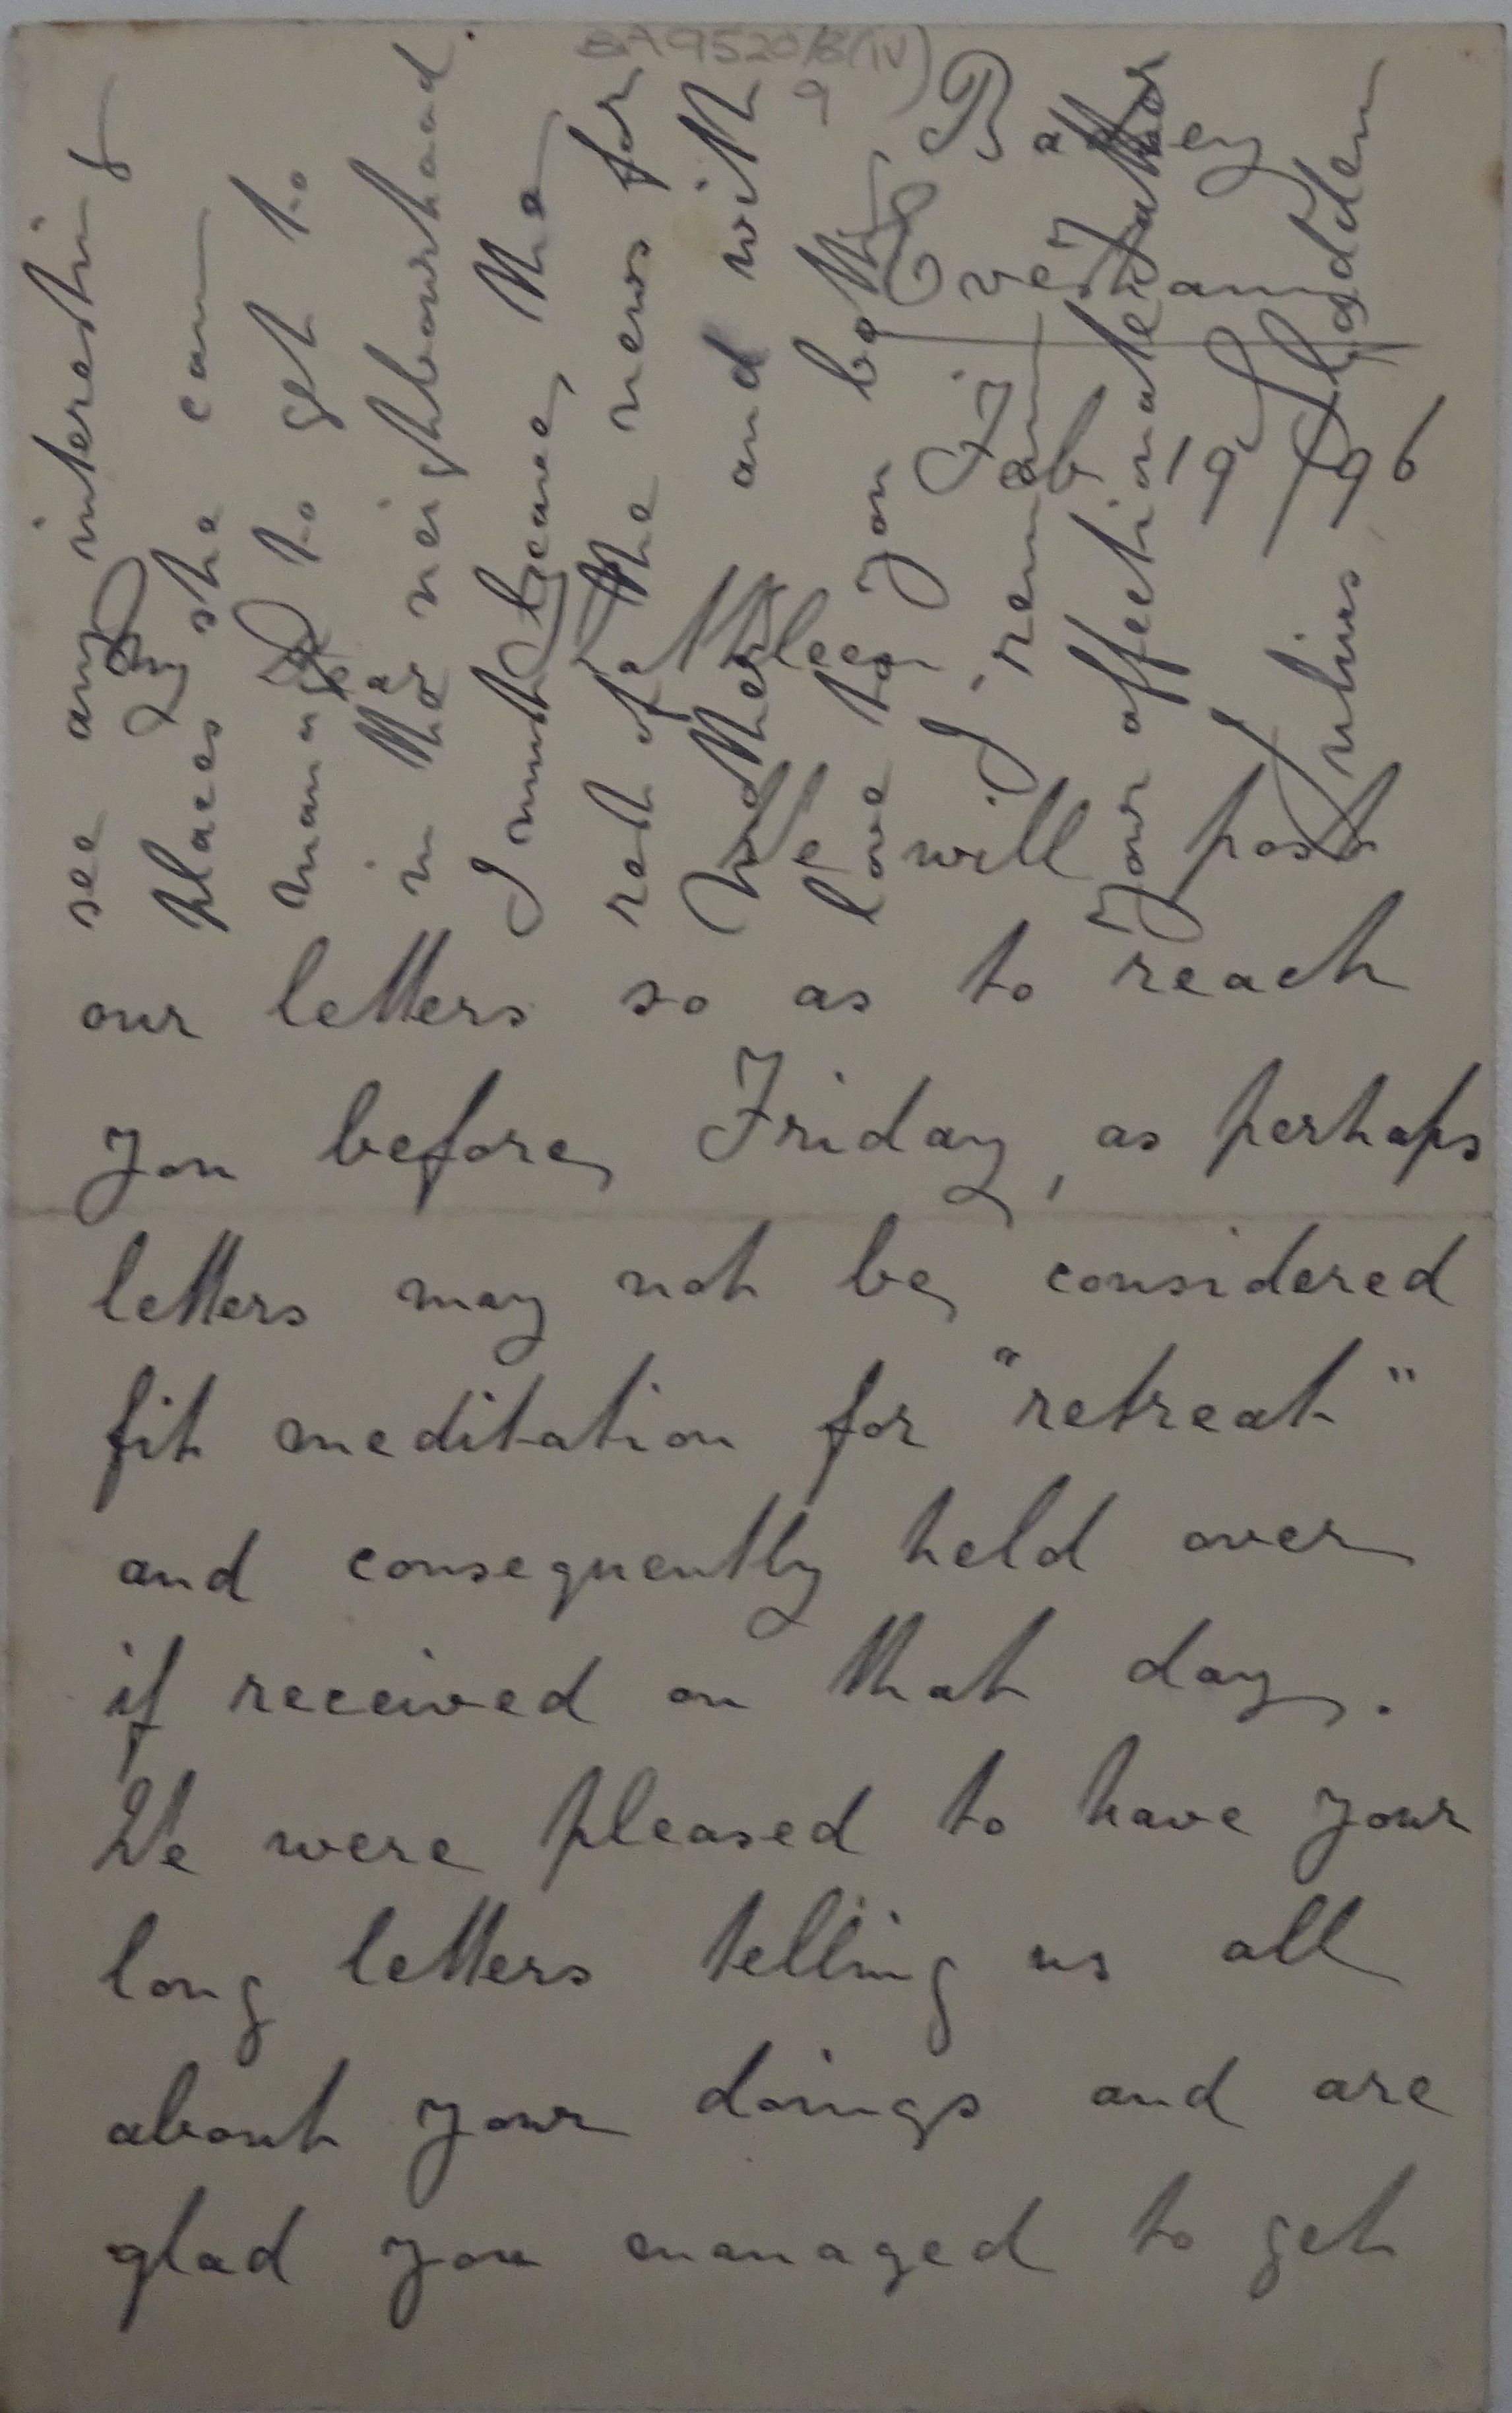 BA9520/8(iv)
9
Badsey
Evesham
Feb 19 /96
My
Dear
Kathleen
We will post
our letters so as to reach
you before Friday, as perhaps
letters may not be considered
fit meditation for "retreat"
and consequently held over
if received on that day.
We were pleased to have your
long letters telling us all
about your doings and are
glad you managed to get
see any interesting
places she can
manage to get to
in the neighbourhood
I must leave the
rest of the news for
Mother and with
love to you both
I remain
Your affectionate father
Julius Sladden